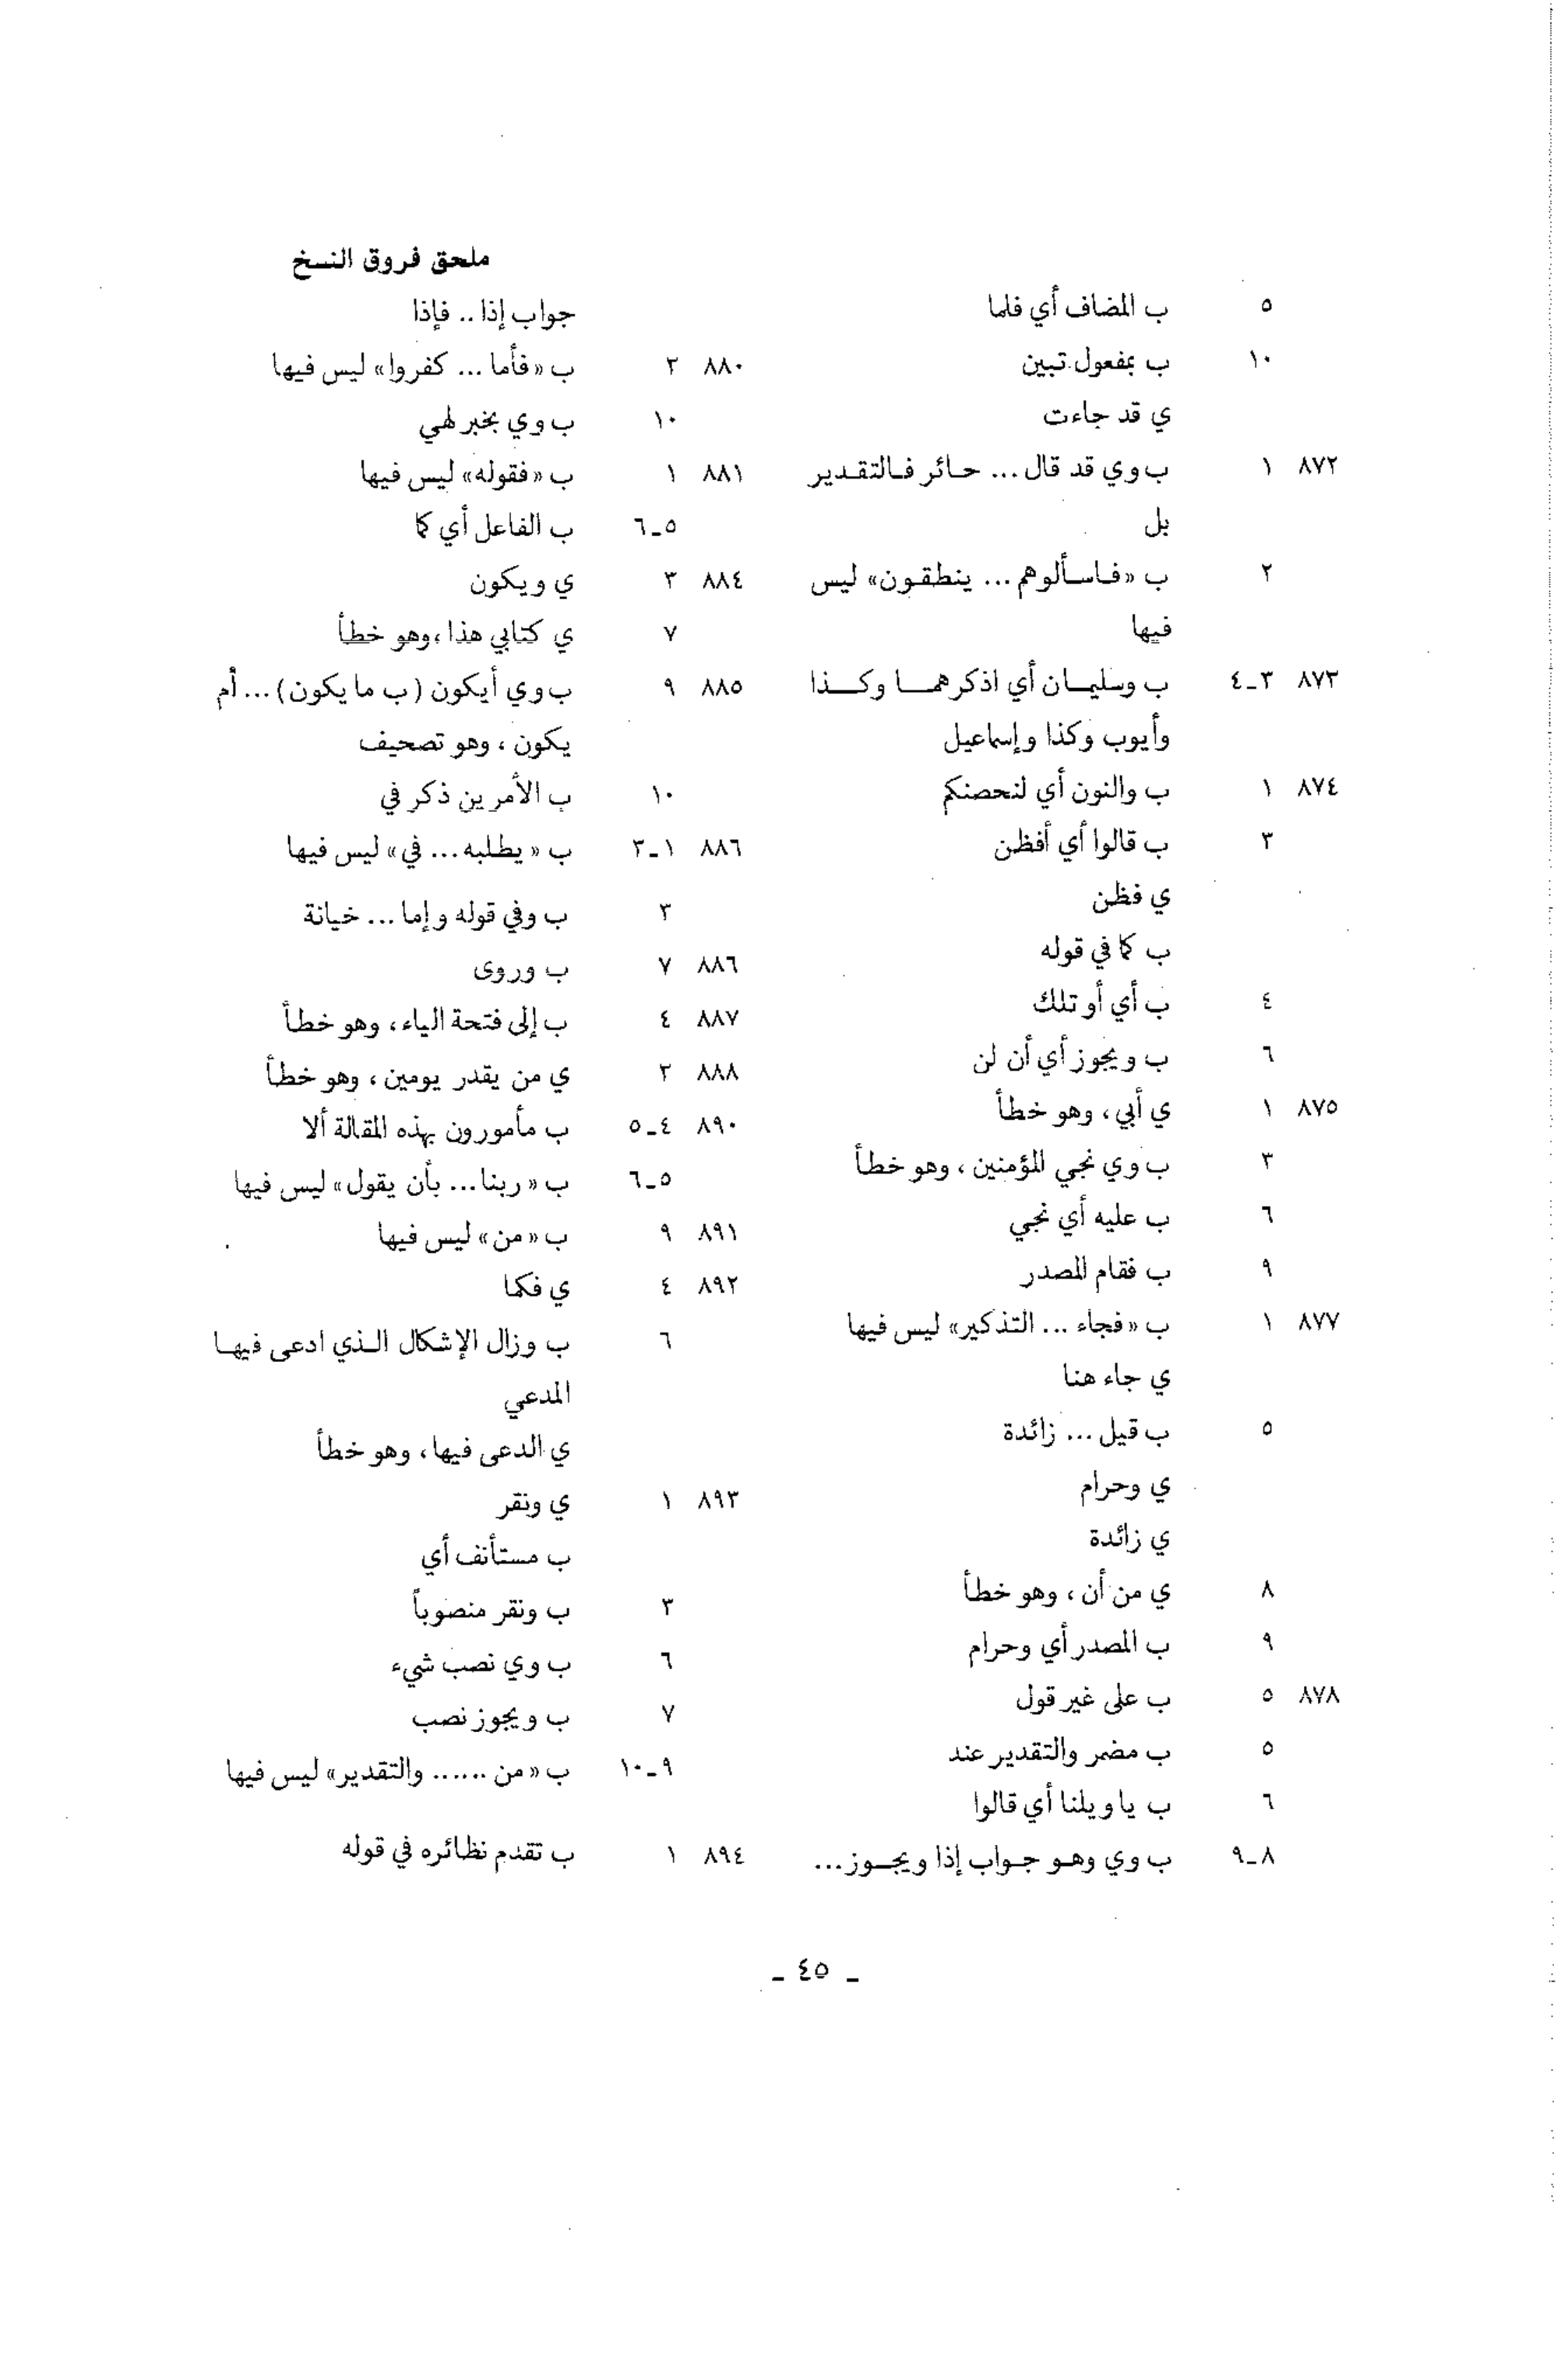 ملحق فروق النسخ
٥ ب المضاف أي فلما
١٠ ب بمفعول تبين
ي قد جاءت
٨٧٢ ١ ب وي قد قال ... حائر فالتقدير
بل
٢ ب «فاسألوهم ... ينطقون» ليس
فيها
٨٧٣ ٣ـ٤ ب وسليمان أي اذكرهما وكذا
وأيوب وكذا وإسماعيل
٨٧٤ ١ ب والنون أي لنحصنكم
٣ ب قالوا أي أفظن
ي فظن
ب كما في قوله
٤ ب أي أو تلك
٦ ب ويجوز أي أن لن
٨٧٥ ١ ي أبي، وهو خطأ
٣ ب وي نجي المؤمنين، وهو خطأ
٦ ب عليه أي نجي
٩ ب فقام المصدر
٨٧٧ ١ ب «فجاء ... التذكير» ليس فيها
ي جاء هنا
٥ ب قيل ... زائدة
ي وحرام
ي زائدة
٨ ي من أن، وهو خطأ
٩ ب المصدر أي وحرام
٨٧٨ ٥ ب على غير قول
٥ ب مضمر والتقدير عند
٦ ب ياويلنا أي قالوا
٨ـ٩ ب وي وهو جواب إذا ويجوز...
جواب إذا .. فإذا
٨٨٠ ٢ ب «فأما ... كفروا» ليس فيها
١٠ ب وي بخبر لهي
٨٨١ ١ ب «فقوله» ليس فيها
٥ـ٦ ب الفاعل أي كما
٨٨٤ ٣ ي ويكون
٧ ي كتابي هذا، وهو خطأ
٨٨٥ ٩ ب وي أيكون (ب ما يكون) ... أم
يكون، وهو تصحيف
١٠ ب الأمرين ذكر في
٨٨٦ ١ـ٣ ب «يطلبه ... في» ليس فيها
٣ ب وفي قوله وإما ... خيانة
٨٨٦ ٧ ب وروى
٨٨٧ ٤ ب إلى فتحة الياء، وهو خطأ
٨٨٨ ٢ ي من يقدر يومين، وهو خطأ
٨٩٠ ٤ـ٥ ب مأمورون بهذه المقالة ألا
٥ـ٦ ب «ربنا ... بأن يقول» ليس فيها
٨٩١ ٩ ب «من» ليس فيها
٨٩٢ ٤ ي فكما
٦ ب وزال الإشكال الذي ادعى فيها
المدعي
ي الدعى فيها، وهو خطأ
٨٩٣ ١ ي ونقر
ب مستأنف أي
٣ ب ونقر منصوباً
٦ ب وي نصب شيء
٧ ب ويجوز نصب
٩ـ١٠ ب «من ...... والتقدير» ليس فيها
٨٩٤ ١ ب تقدم نظائره في قوله
ـ ٤٥ ـ